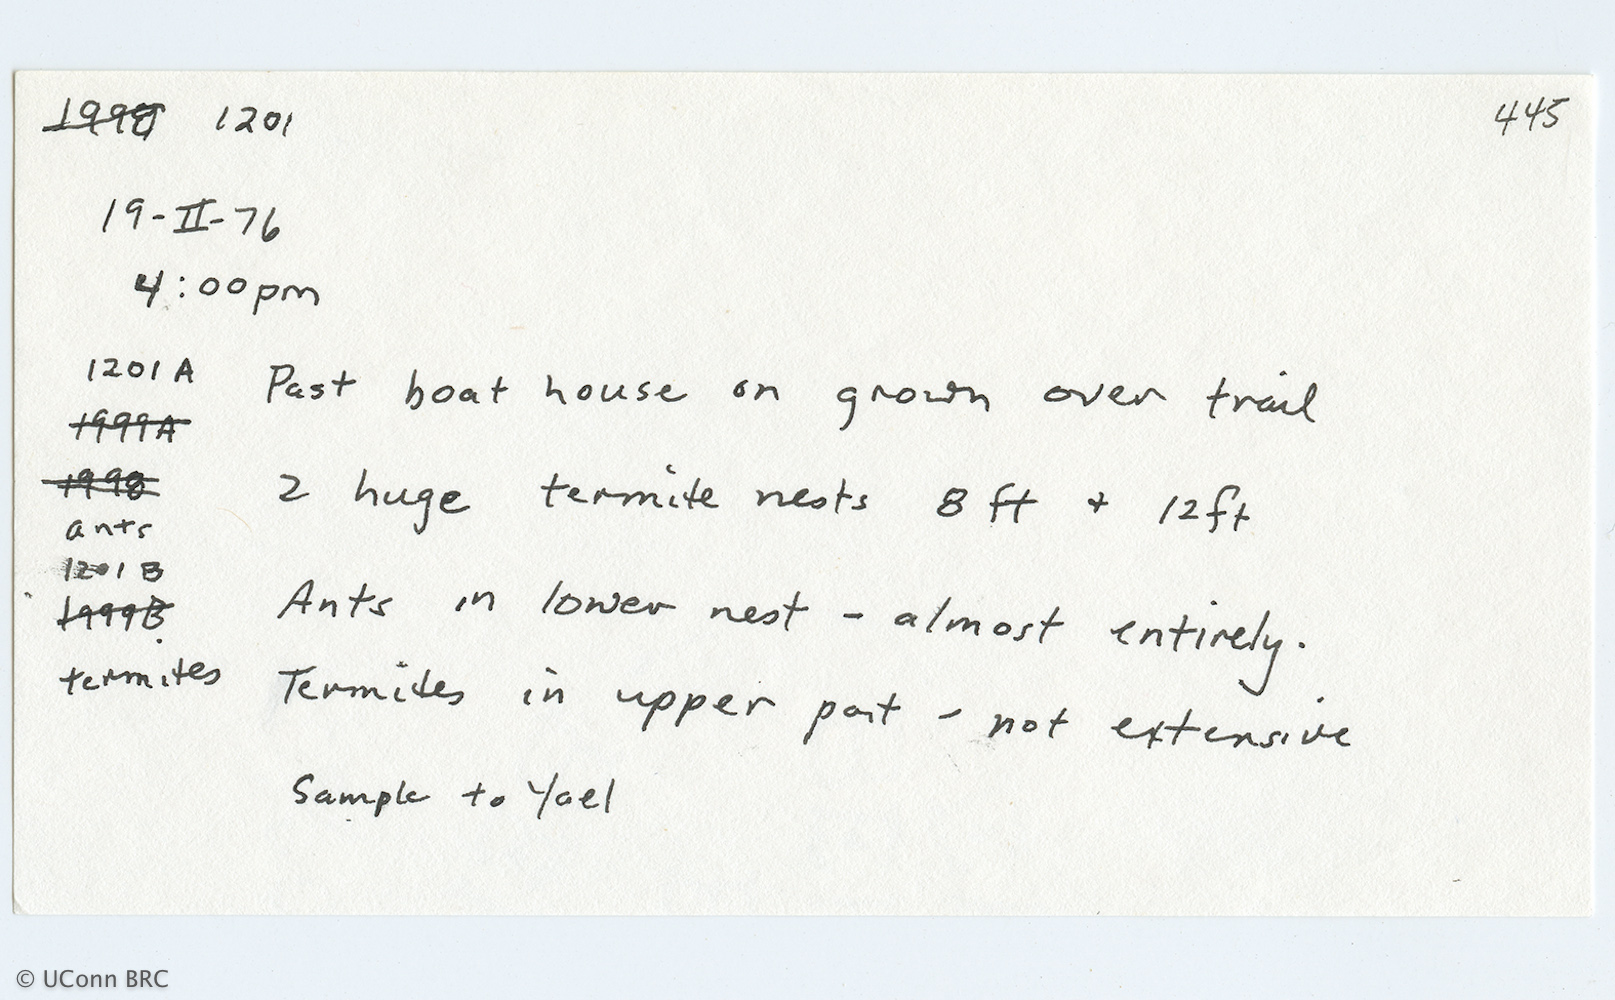 1998 1201
445
19-II-76
4:00pm
1201 A
Past boat house on grown over trail
1999A
1998
2 huge termite nests 8 ft + 12ft
ants
1201 B
1999B
Ants in lower nest - almost entirely.
termites
Termites in upper part - not extensive
Sample to Yael
© UConn BRC